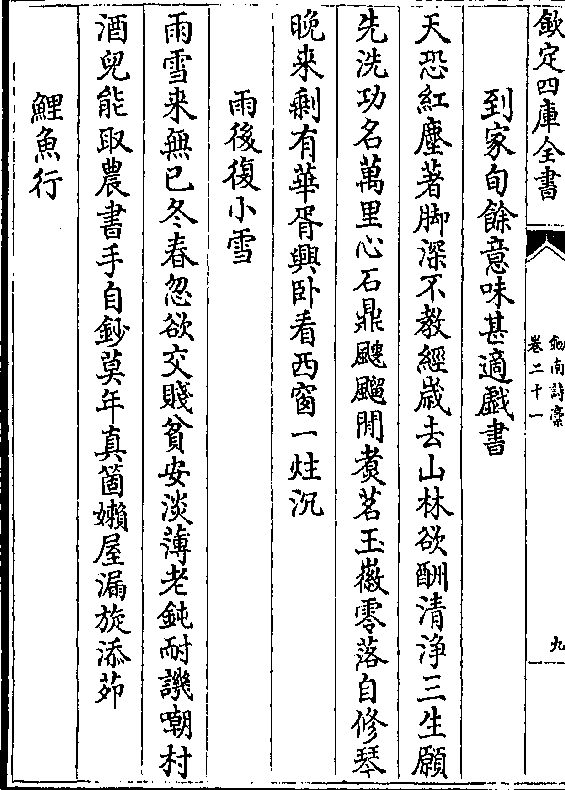 欽定四庫全書
劍南詩藁
卷二十一
九
到家旬餘意味甚適戲書
天恐紅塵著脚深不教經歲去山林欲酬清淨三生願
先洗功名萬里心石鼎颼飀閒煑茗玉徽零落自修琴
晚来剩有華胥興卧看西窗一炷沉
雨後復小雪
雨雪来無已冬春忽欲交賤貧安淡薄老鈍耐譏嘲村
酒兒能取農書手自鈔莫年真箇嬾屋漏旋添茆
鯉魚行